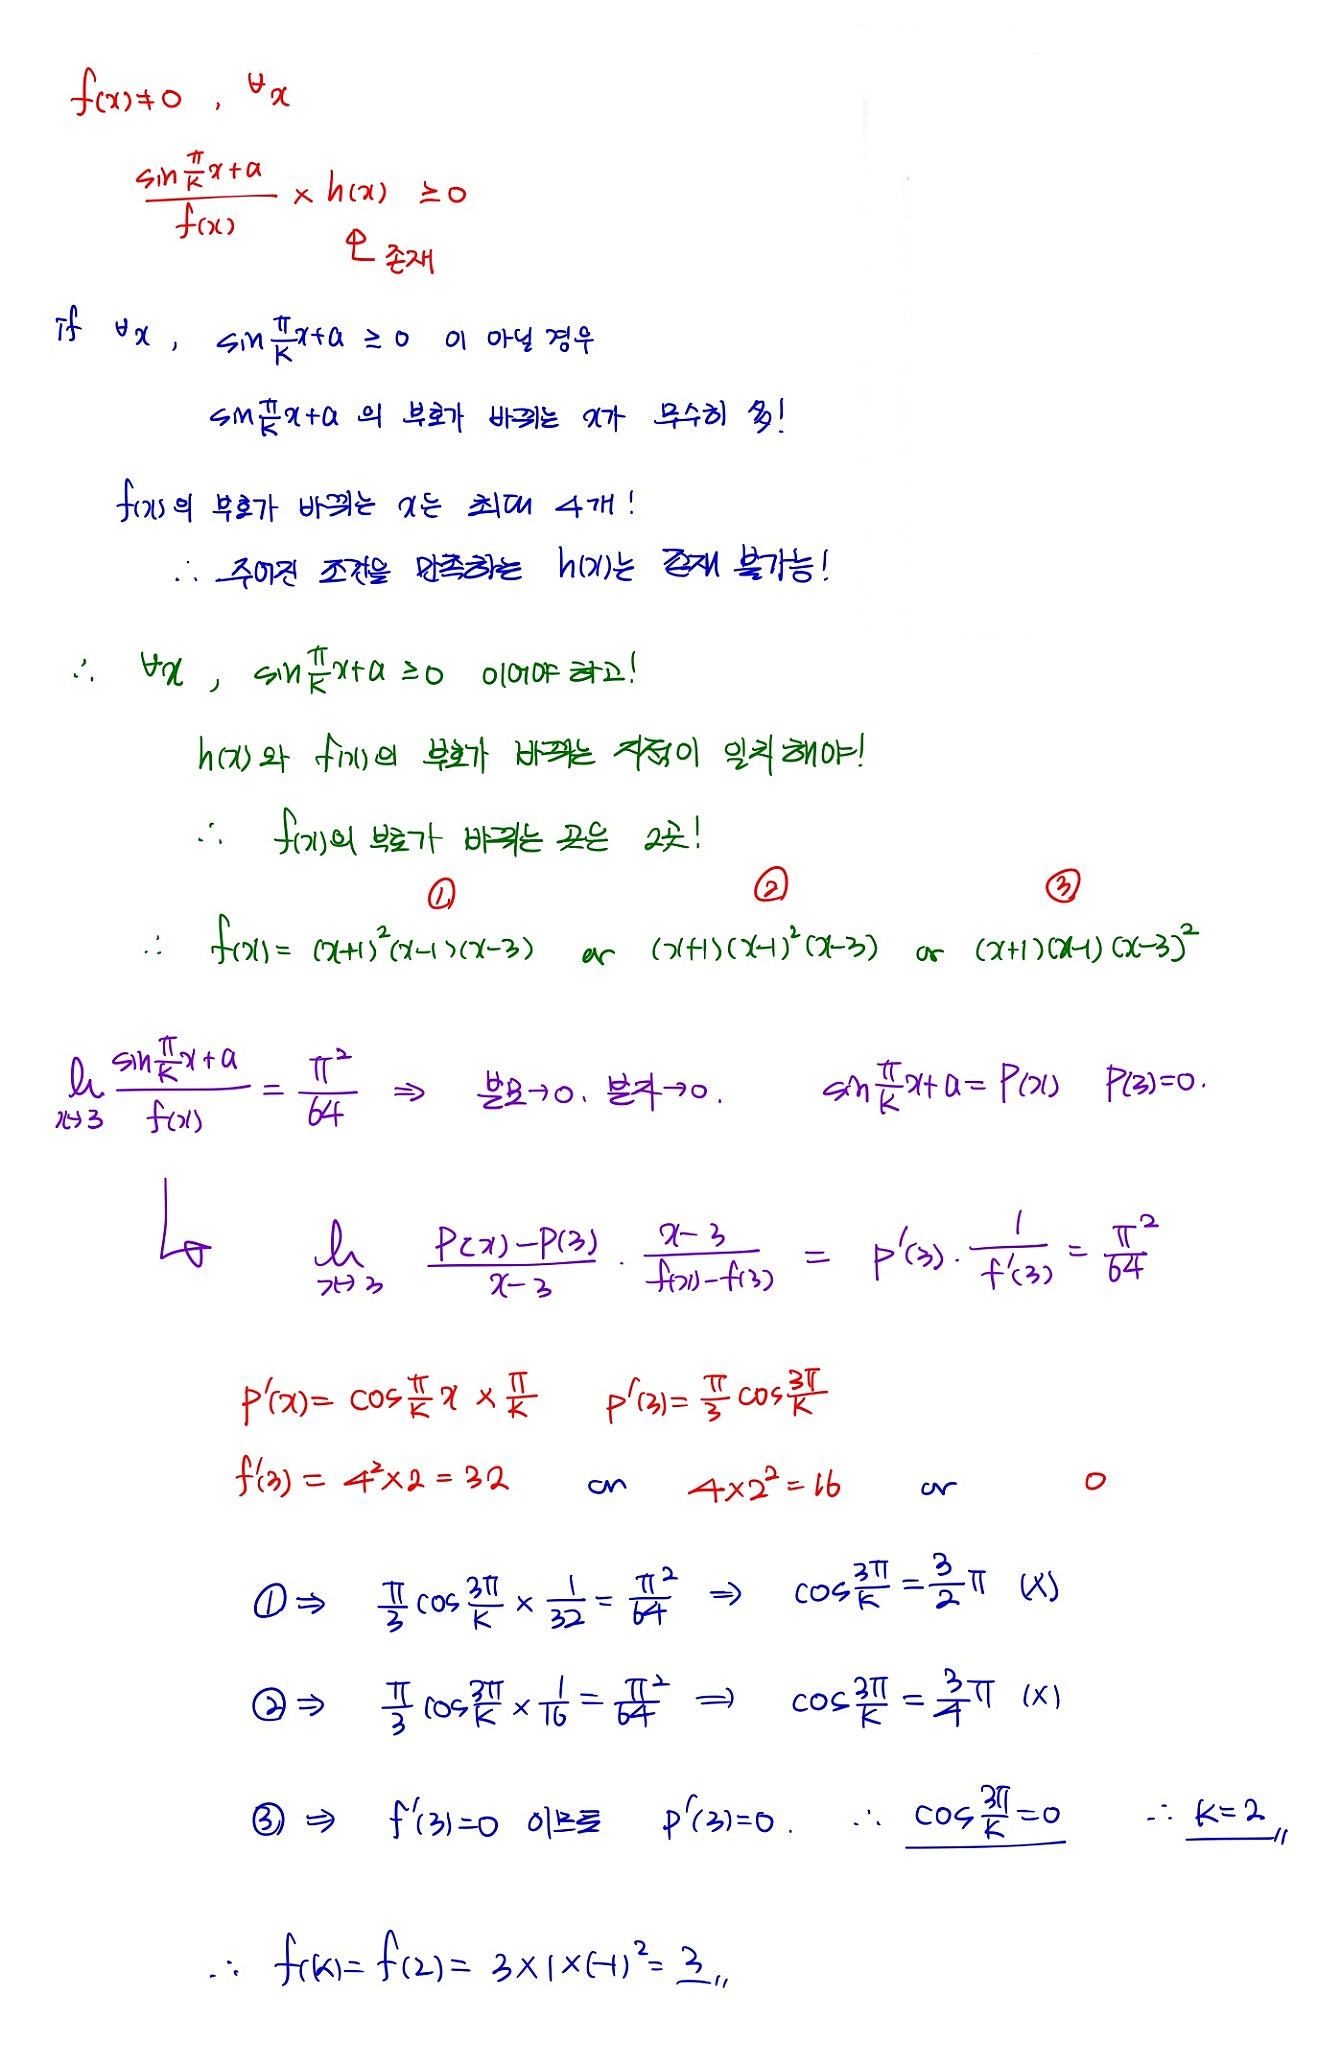 f(x)≠0 , ∀x
(sin π/k x+a)/f(x) × h(x) ≥0
존재
if ∀x, sin π/k x+a ≥0 이 아닐 경우
sin π/k x+a 의 부호가 바뀌는 x가 무수히 多!
f(x)의 부호가 바뀌는 x는 최대 4개!
∴ 주어진 조건을 만족하는 h(x)는 존재 불가능!
∴ ∀x , sin π/k x+a ≥0 이어야 하고!
h(x)와 f(x)의 부호가 바뀌는 지점이 일치해야!
∴ f(x)의 부호가 바뀌는 곳은 2곳!
① ② ③
∴ f(x)= (x+1)²(x-1)(x-3) or (x+1)(x-1)²(x-3) or (x+1)(x-1)(x-3)²
lim x→3 (sin π/k x+a)/f(x) = π²/64 ⇒ 분모→0. 분자→0. sin π/k x+a = P(x) P(3)=0.
lim x→3 (P(x)-P(3))/(x-3) · (x-3)/(f(x)-f(3)) = P'(3)· 1/f'(3) = π²/64
P'(x)= cos π/k x × π/k P'(3)= π/3 cos 3π/k
f'(3) = 4²×2=32 or 4×2²=16 or 0
①⇒ π/3 cos 3π/k × 1/32 = π²/64 ⇒ cos 3π/k = 3/2 π (X)
②⇒ π/3 cos 3π/k × 1/16 = π²/64 ⇒ cos 3π/k = 3/4 π (X)
③ ⇒ f'(3)=0 이므로 P'(3)=0. ∴ cos 3π/k =0 ∴ k=2
∴ f(k)= f(2)= 3×1×(-1)²= 3